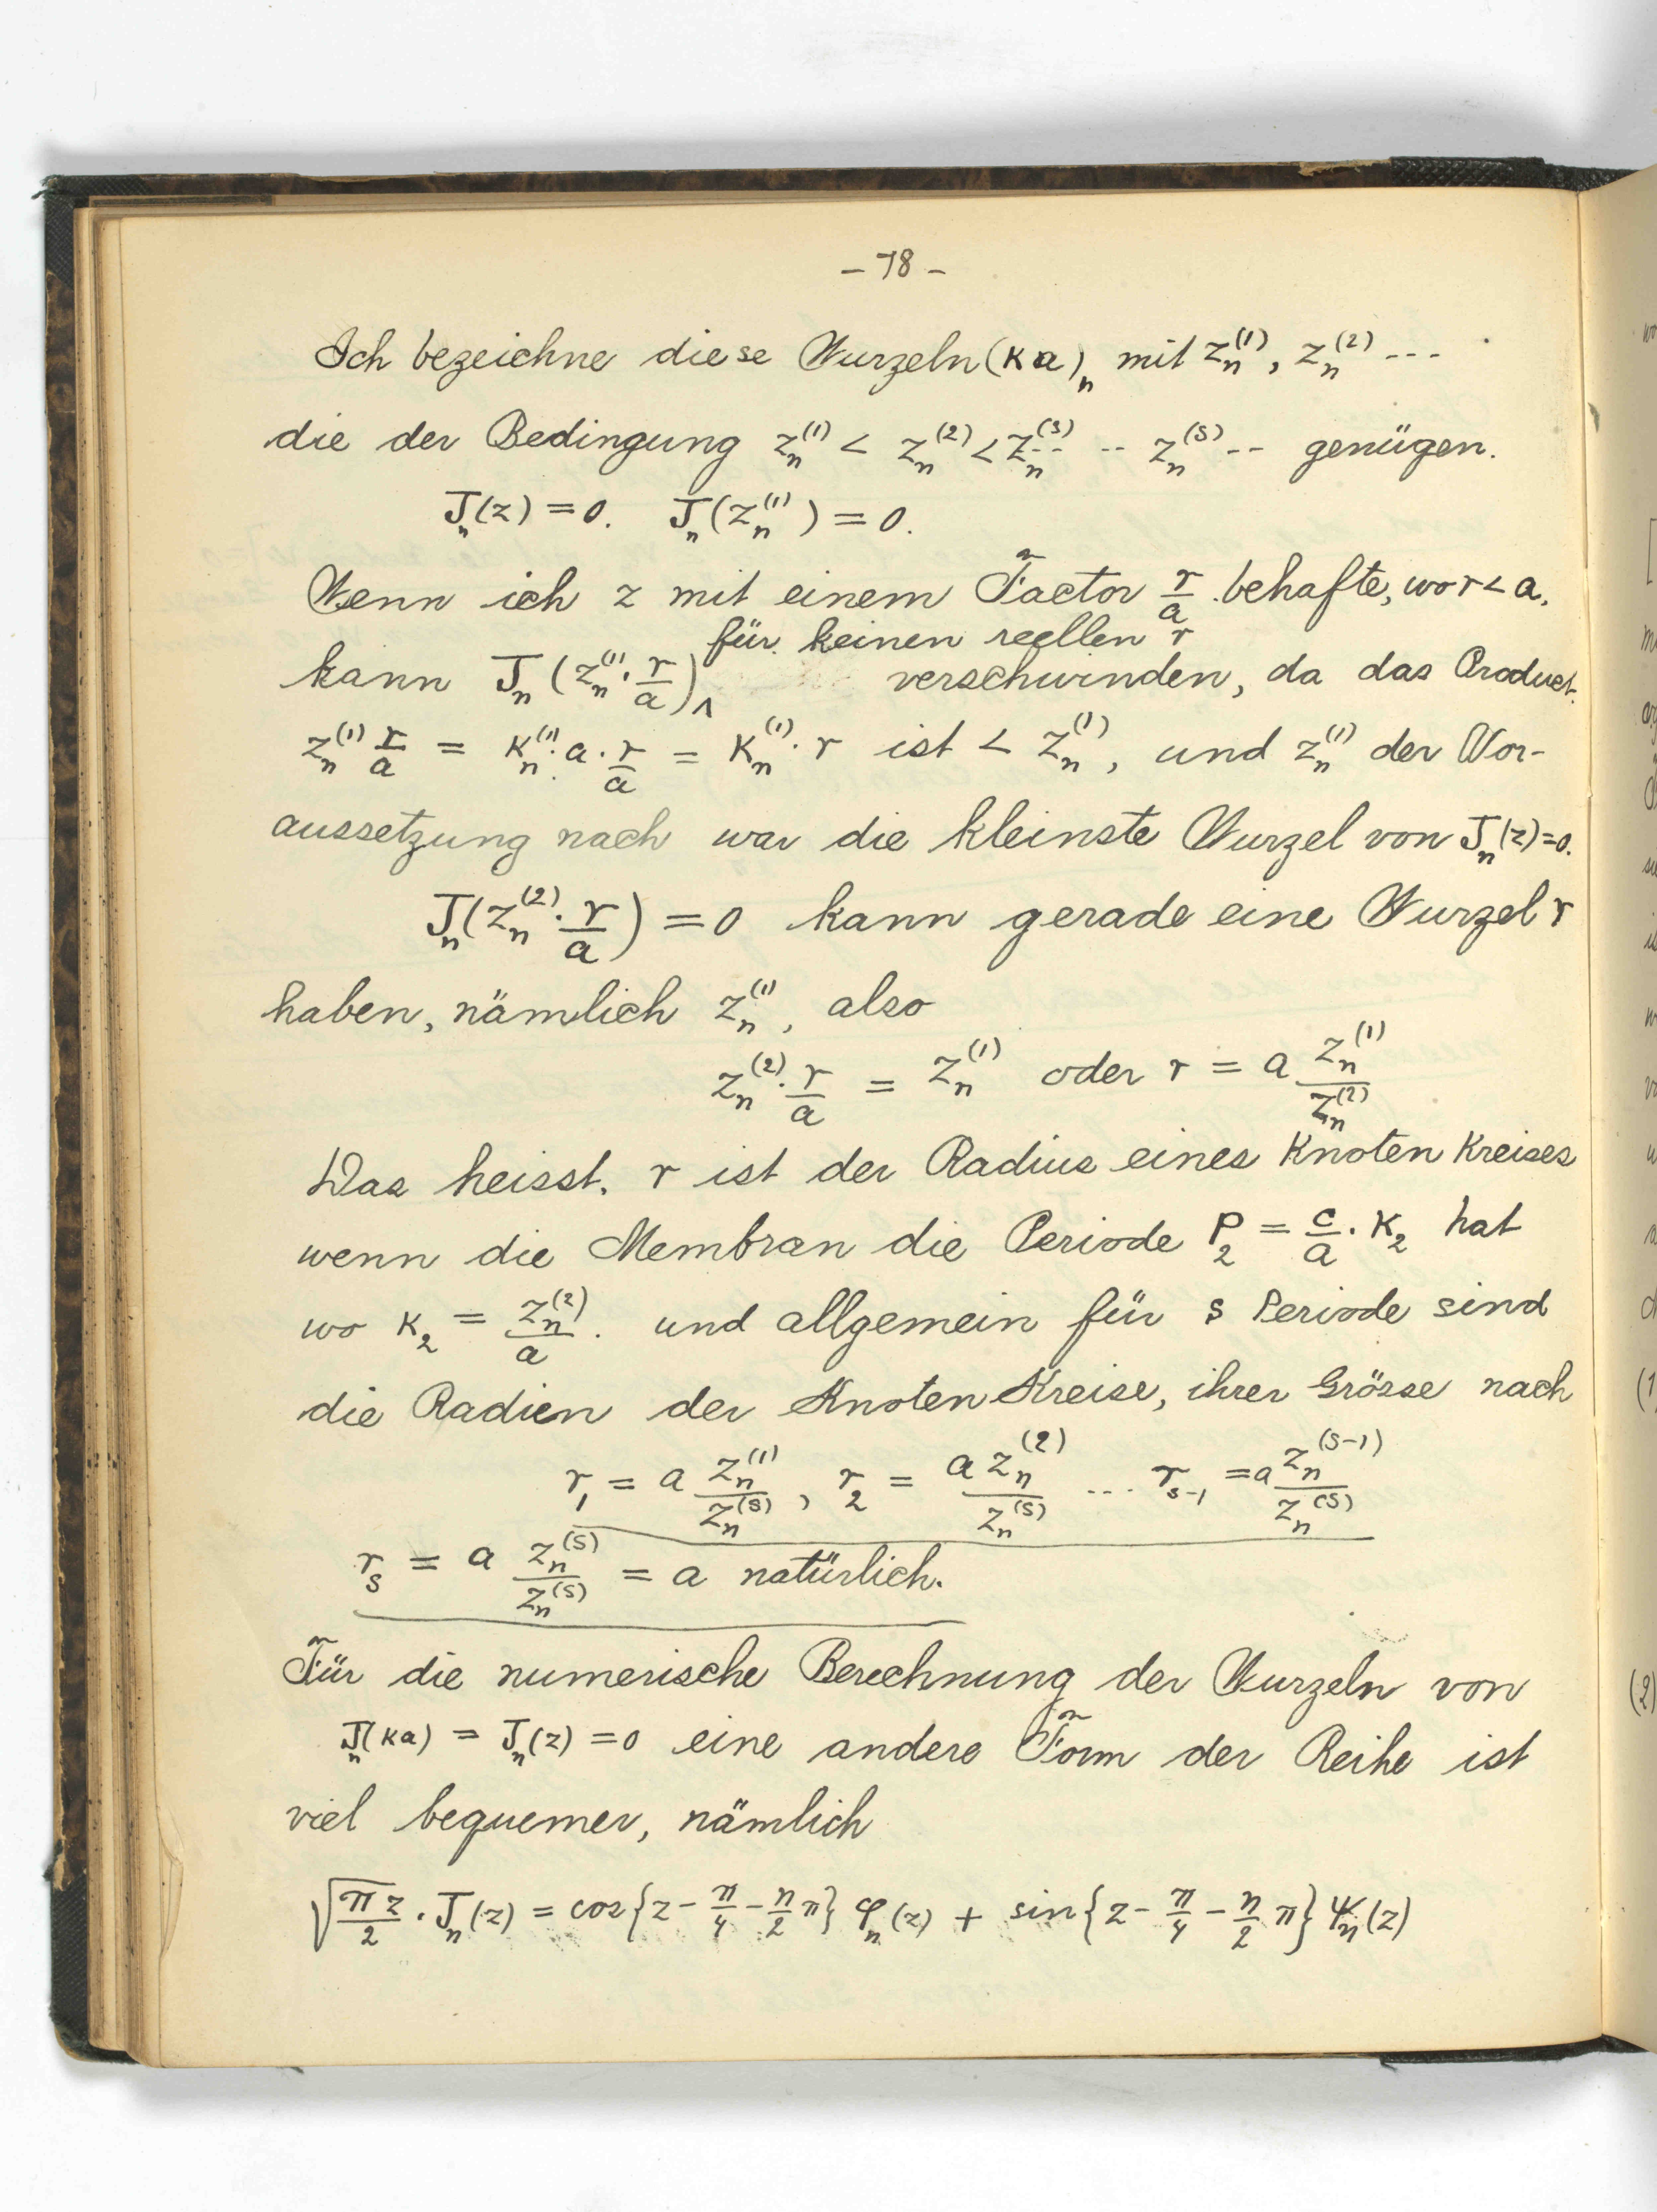 – 78 –
Ich bezeichne diese Wurzeln (κa)_n mit z_n^(1), z_n^(2) ---
die der Bedingung z_n^(1) < z_n^(2) < z_n^(3) -- -- z_n^(s) -- genügen.
J_n(z) = 0. J_n(z_n^(1)) = 0.
Wenn ich z mit einem Factor r/a behafte, wo r < a,
für keinen reellen r
kann J_n(z_n^(1) · r/a) ‸ verschwinden, da das Product
z_n^(1) r/a = κ_n^(1) · a · r/a = κ_n^(1) · r ist < z_n^(1), und z_n^(1) der Vor-
aussetzung nach war die kleinste Wurzel von J_n(z) = 0.
J_n(z_n^(2) · r/a) = 0 kann gerade eine Wurzel r
haben, nämlich z_n^(1), also
z_n^(2) · r/a = z_n^(1) oder r = a z_n^(1)/z_n^(2)
Das heisst. r ist der Radius eines Knoten Kreises
wenn die Membran die Periode P_2 = c/a · κ_2 hat
wo κ_2 = z_n^(2)/a . und allgemein für s Periode sind
die Radien der Knoten Kreise, ihrer Grösse nach
r_1 = a z_n^(1)/z_n^(s), r_2 = a z_n^(2)/z_n^(s) ... r_{s-1} = a z_n^(s-1)/z_n^(s)
r_s = a z_n^(s)/z_n^(s) = a natürlich.
Für die numerische Berechnung der Wurzeln von
J_n(κa) = J_n(z) = 0 eine andere Form der Reihe ist
viel bequemer, nämlich
√(πz/2) · J_n(z) = cos{z - π/4 - n/2 π} φ_n(z) + sin{z - π/4 - n/2 π} ψ_n(z)